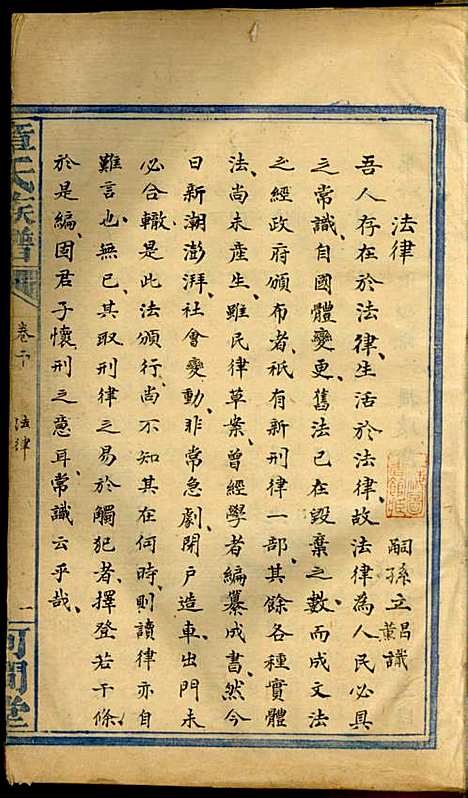 法律
嗣孫立昌薰識
吾人存在於法律、生活於法律、故法律為人民必具
之常識、自國體變更、舊法已在毀棄之數、而成文法
之經政府頒布者、祇有新刑律一部、其餘各種實體
法、尚未產生、雖民律草案、曾經學者編纂成書、然今
日新潮澎湃、社會變動、非常急劇、閉戶造車、出門未
必合轍、是此法頒行、尚不知其在何時、則讀律亦自
難言也、無已、其取刑律之易於觸犯者、擇登若干條
於是編、固君子懷刑之意耳、常識云乎哉、
氏族譜
法律
一
河間堂